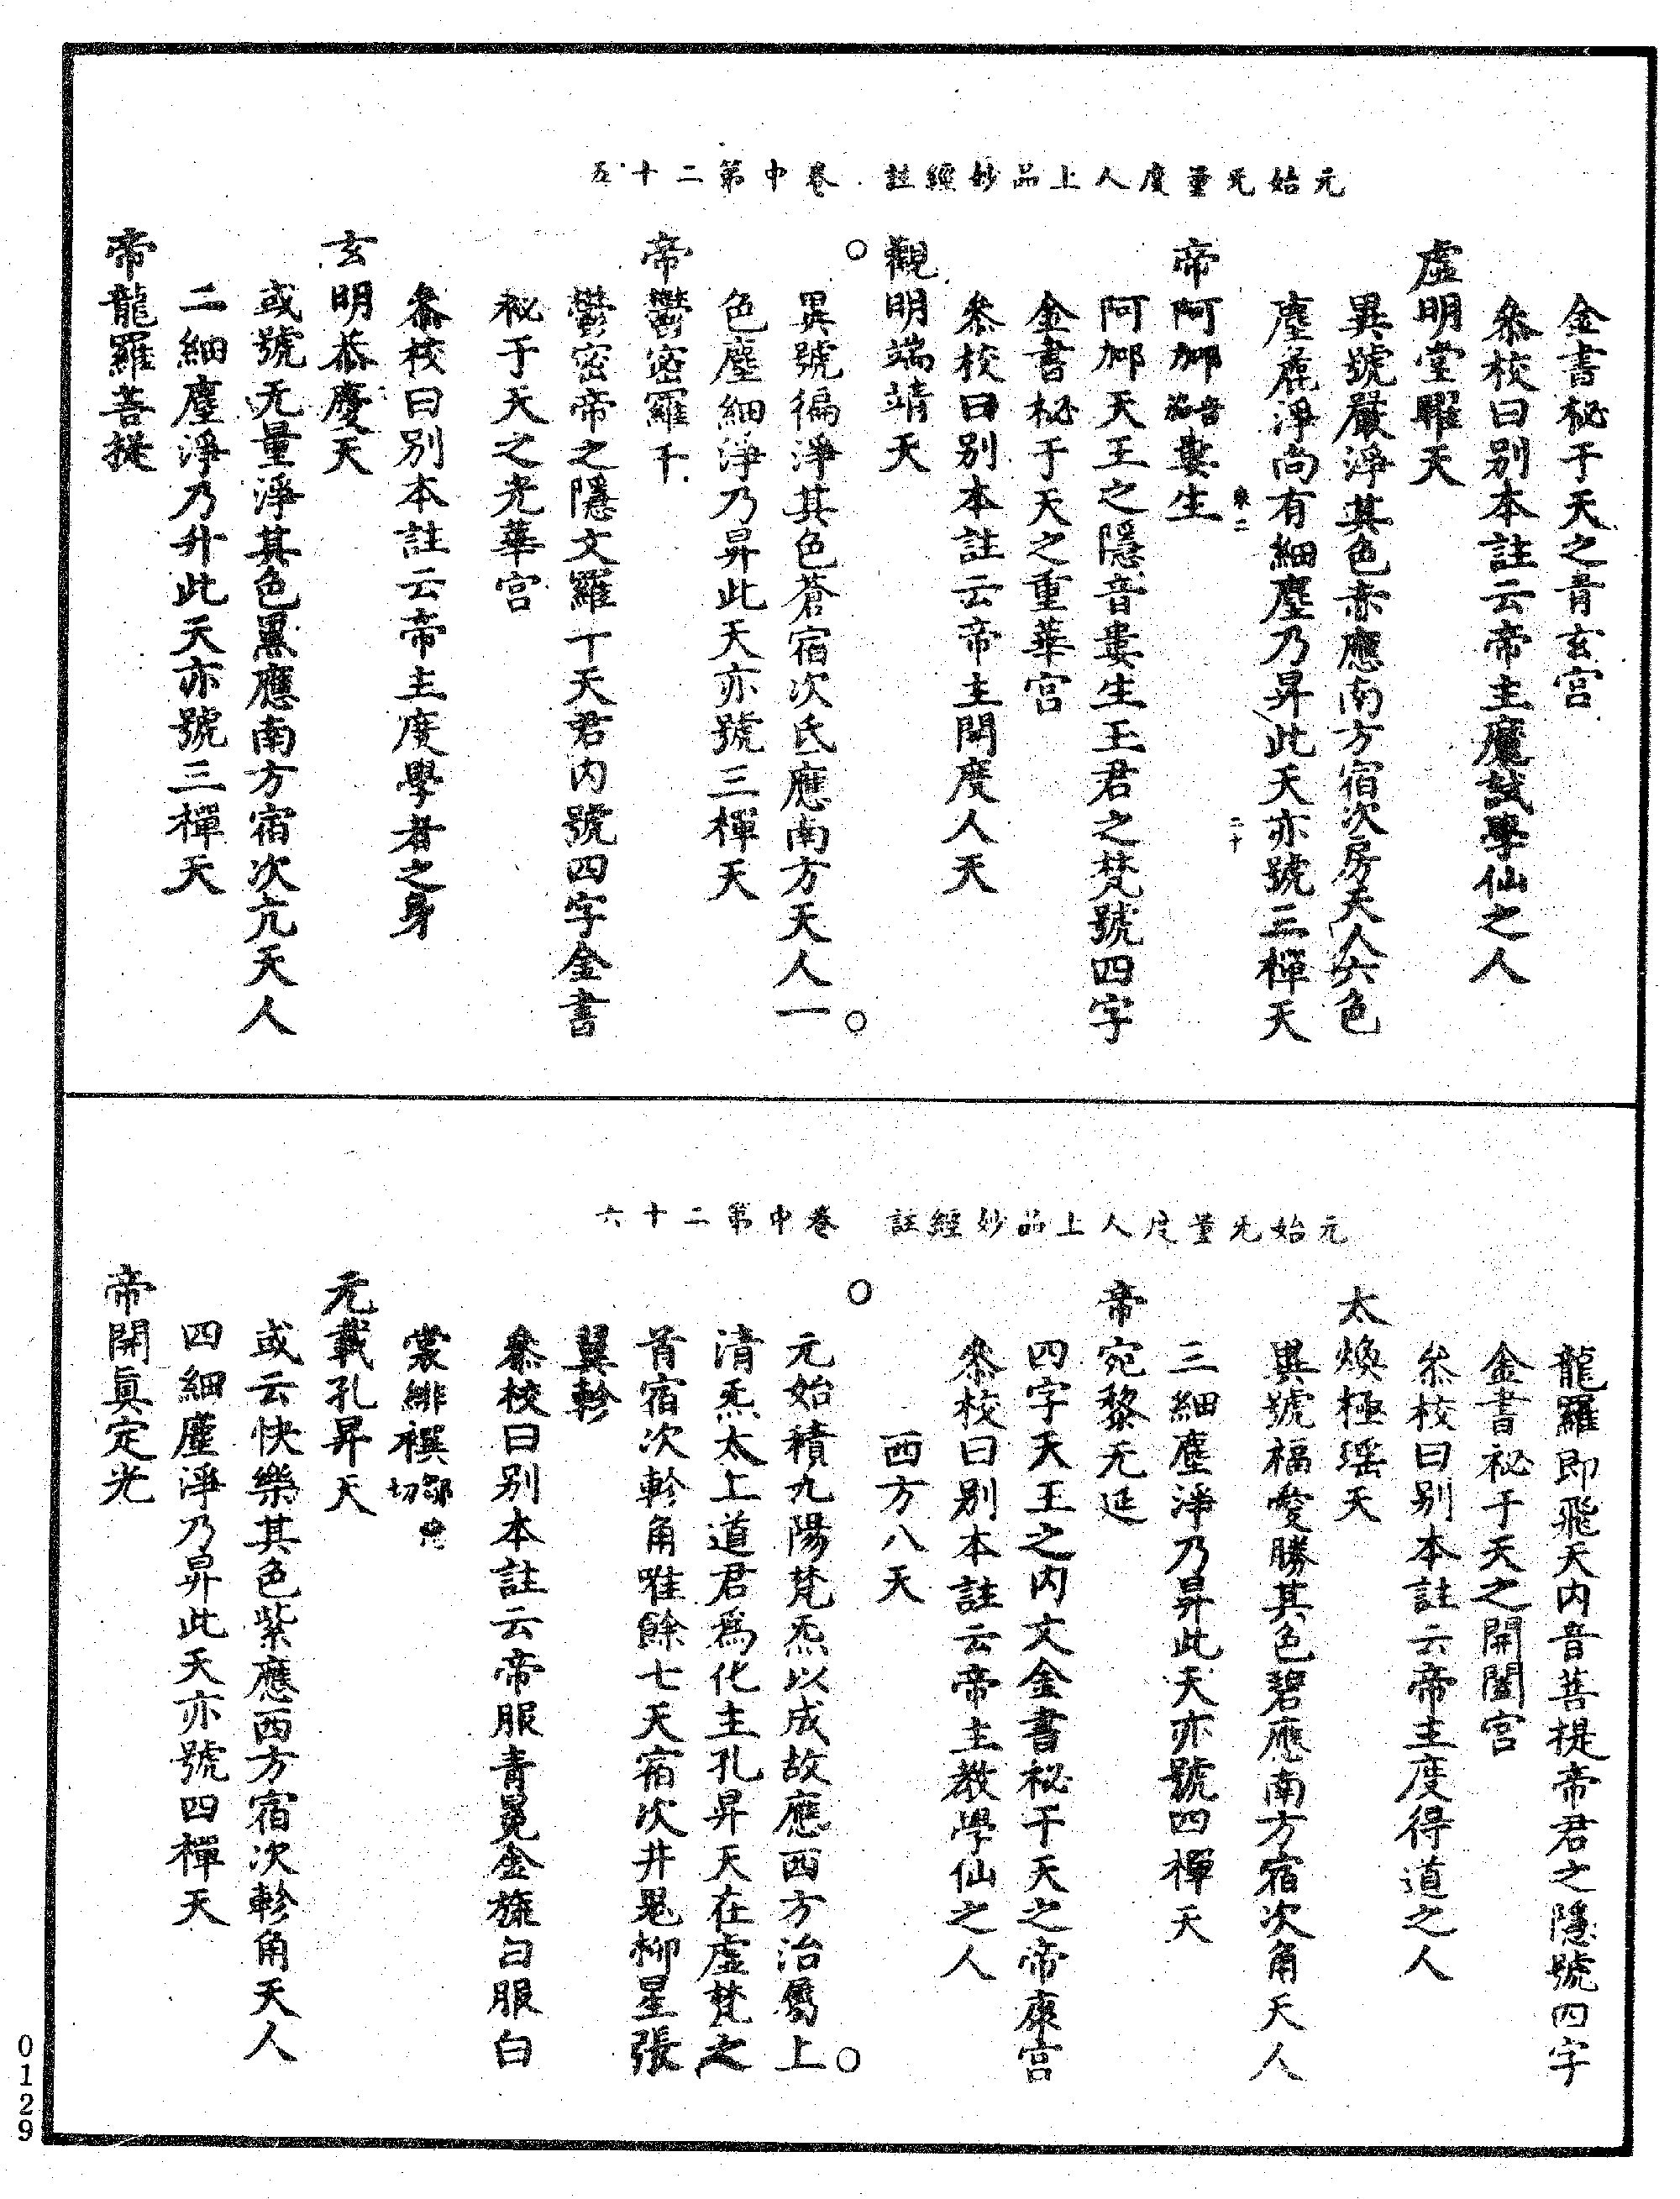 元始无量度人上品妙經註　卷中第二十五
金書祕于天之青玄宮
叅校曰別本註云帝主魔試學仙之人
虛明堂曜天
異號嚴淨其色赤應南方宿次房天人六色
塵麁淨尚有細塵乃昇此天亦號三禪天
帝阿𨚗婁生
阿𨚗天王之隱音婁生王君之梵號四字
金書祕于天之重華宮
叅校曰別本註云帝主開度人天
觀明端靖天
異號徧淨其色蒼宿次氐應南方天人一
色塵細淨乃昇此天亦號三禪天
帝鬱密羅千
鬱密帝之隱文羅千天君內號四字金書
祕于天之光華宮
叅校曰別本註云帝主度學者之身
玄明恭慶天
或號无量淨其色黑應南方宿次亢天人
二細塵淨乃升此天亦號三禪天
帝龍羅菩提
元始无量度人上品妙經註　卷中第二十六
龍羅即飛天內音菩提帝君之隱號四字
金書祕于天之開闔宮
叅校曰別本註云帝主度得道之人
太煥極瑶天
異號福愛勝其色碧應南方宿次角天人
三細塵淨乃昇此天亦號四禪天
帝宛黎无延
四字天王之內文金書祕于天之帝康宮
叅校曰別本註云帝主教學仙之人
西方八天
元始積九陽梵炁以成故應西方治屬上
清炁太上道君爲化主孔昇天在虛梵之
首宿次軫角唯餘七天宿次井鬼柳星張
翼軫
叅校曰別本註云帝服青冕金旒白服白
裳緋襈切
元載孔昇天
或云快樂其色紫應西方宿次軫角天人
四細塵淨乃昇此天亦號四禪天
帝開眞定光
0129